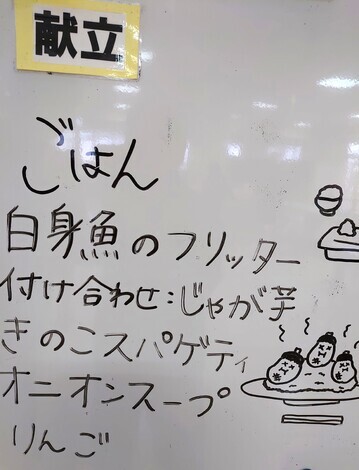 献立
ごはん
白身魚のフリッター
付け合わせ:じゃが芋
きのこスパゲティ
オニオンスープ
りんご